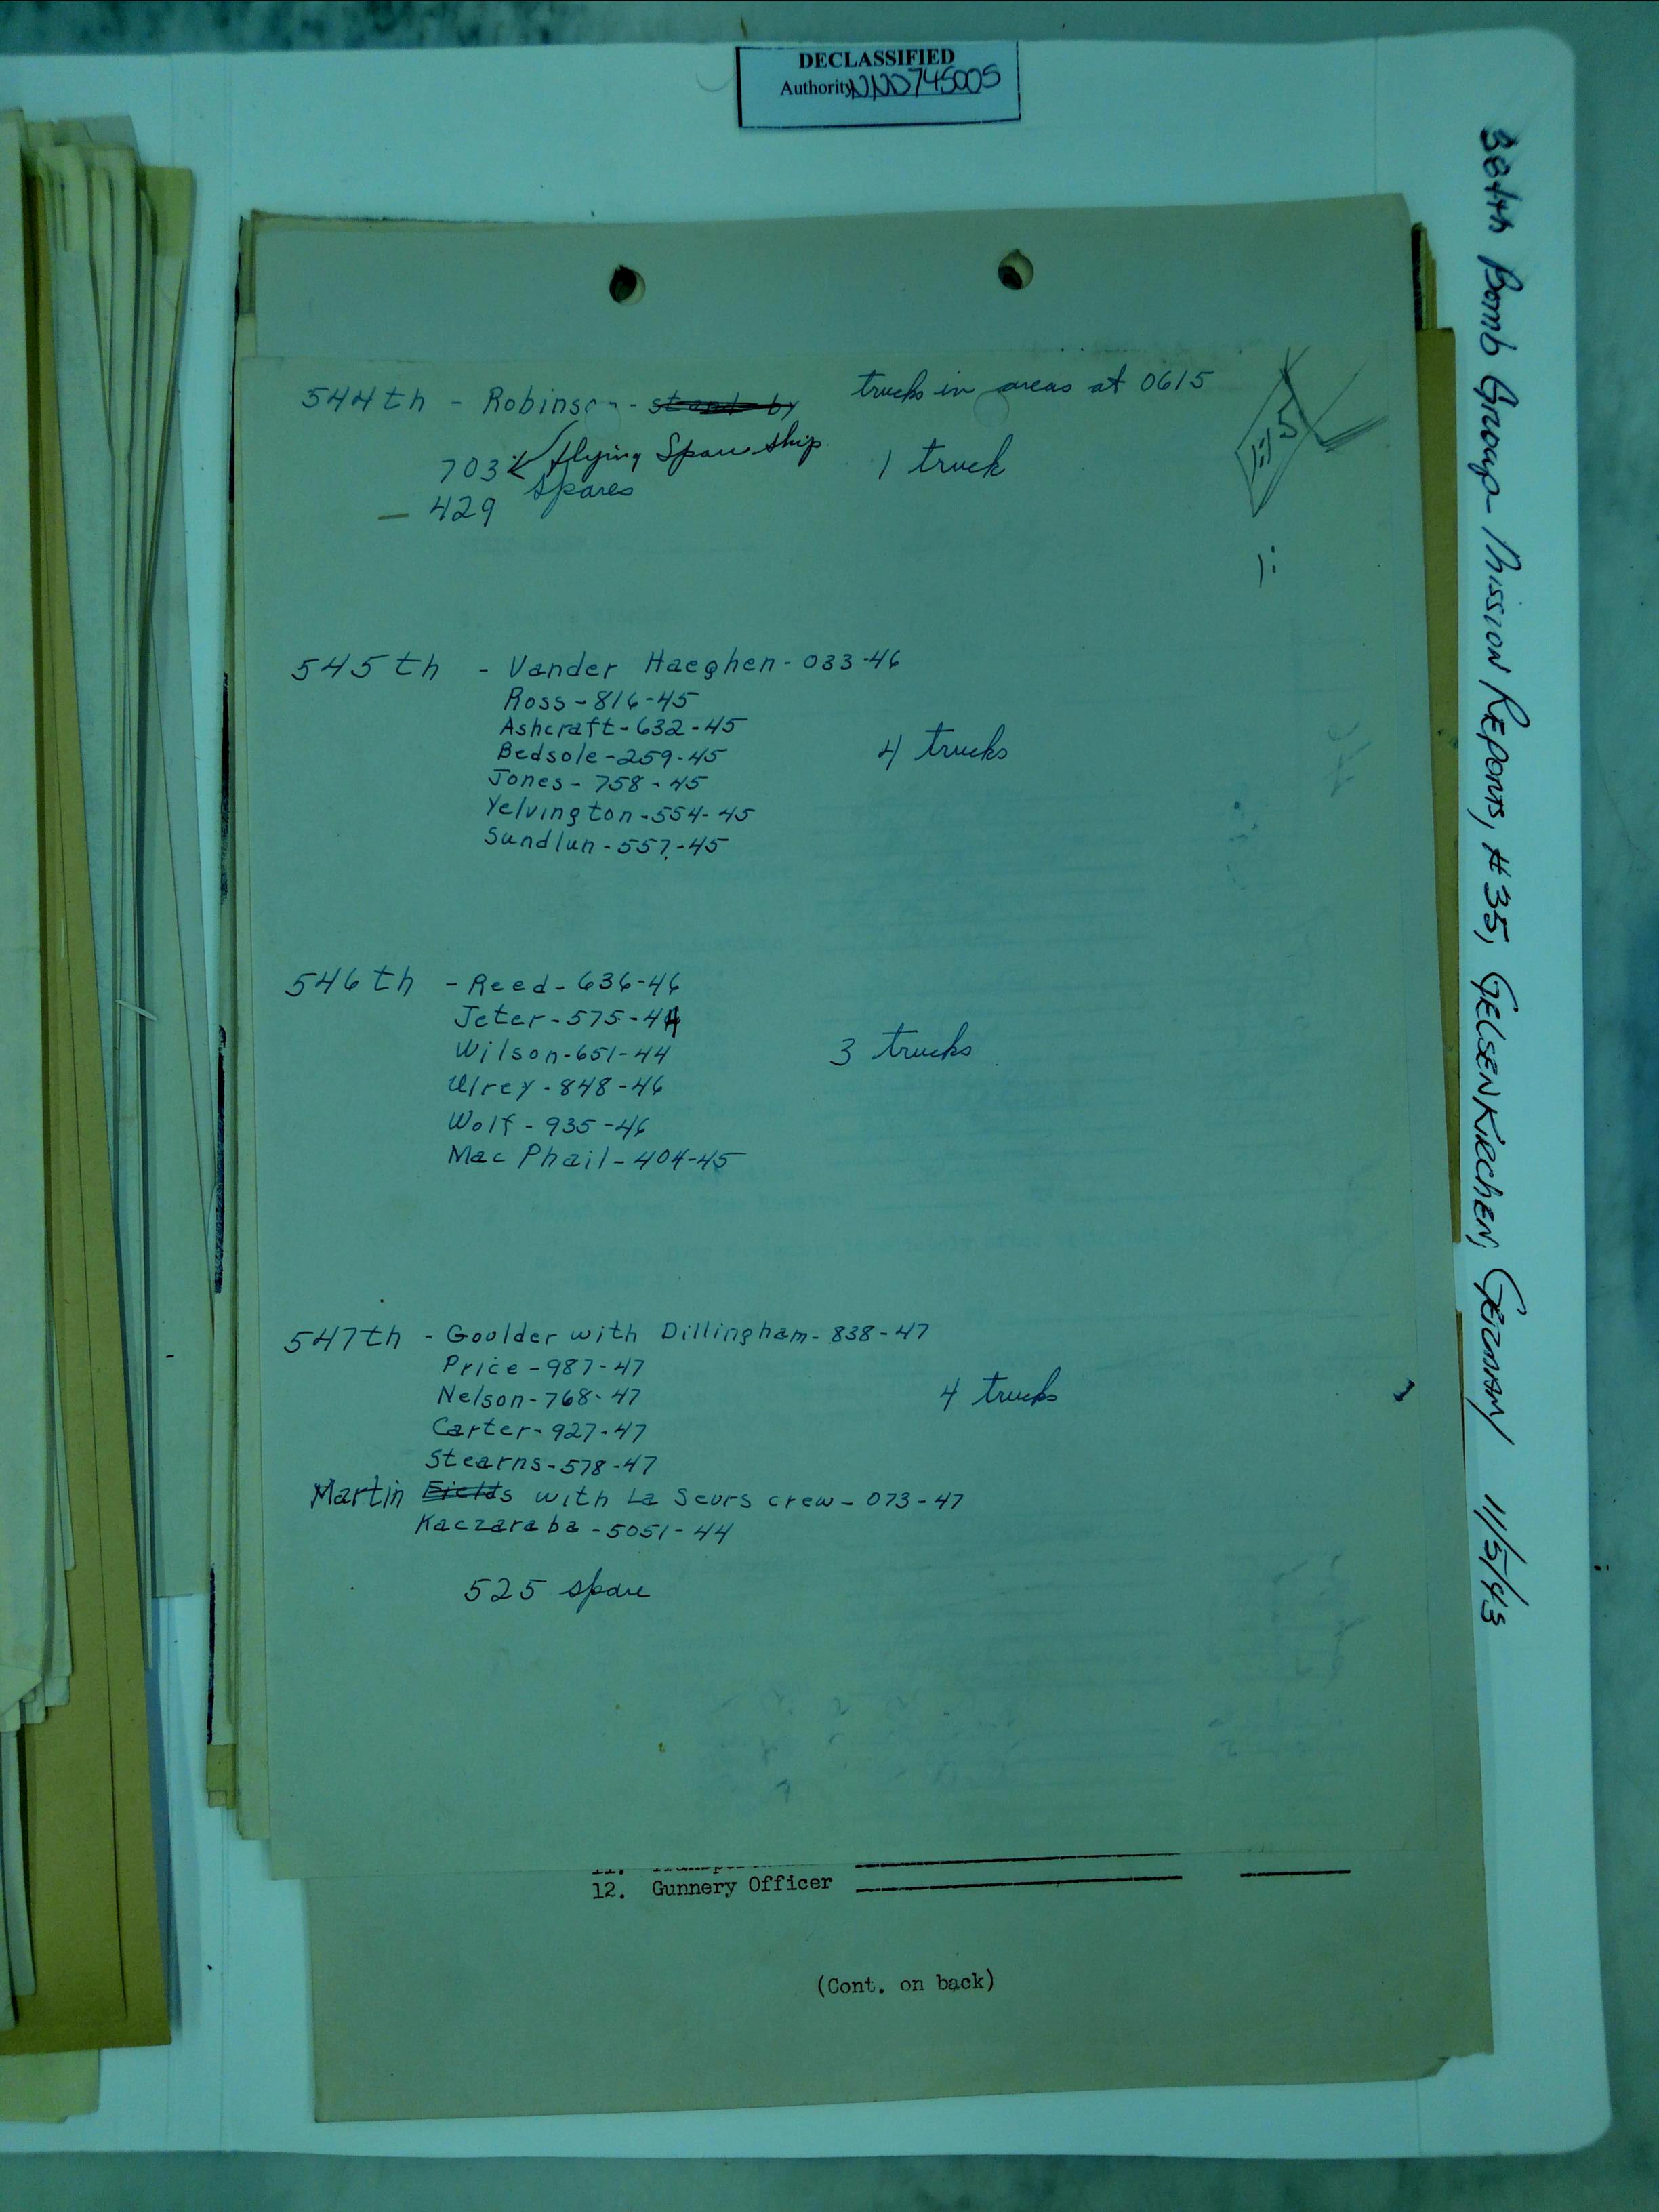 DECLASSIFIED
Authority NND745005
384th Bomb Group Mission Reports, #35, Gelsenkirchen, Germany 11/5/43
544th - Robinson - stand by
trucks in areas at 0615
703 flying Spare ship
Spares
1 truck
429
545th - Vander Haeghen - 033-46
Ross - 816-45
Ashcraft - 632-45
Bedsole - 259-45
4 trucks
Jones - 758-45
Yelvington - 554-45
Sundlun - 557-45
546th - Reed - 636-46
Jeter - 575-44
Wilson - 651-44
3 trucks
Ulrey - 848-46
Wolf - 935-46
Mac Phail - 404-45
547th - Goulder with Dillingham - 838-47
Price - 987-47
Nelson - 768-47
4 trucks
Carter - 927-47
Stearns - 578-47
Martin Fields with La Seurs crew - 073-47
Kaczaraba - 5051-44
525 spare
11.
12. Gunnery Officer
(Cont. on back)